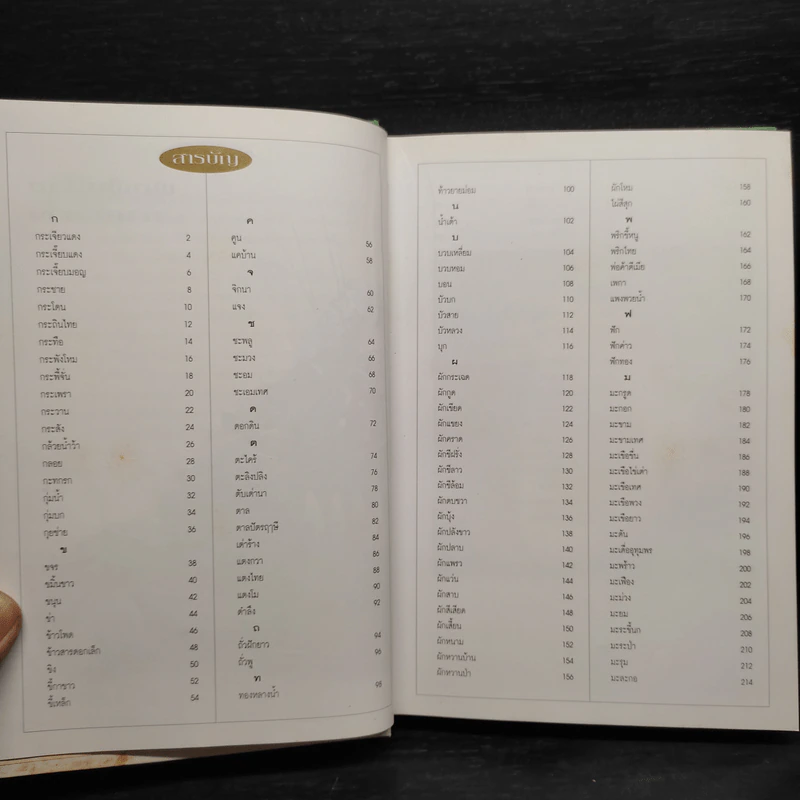 สารบัญ
ก
กระเจียวแดง 2
กระเจี๊ยบแดง 4
กระเจี๊ยบมอญ 6
กระชาย 8
กระโดน 10
กระถินไทย 12
กระทือ 14
กระพังโหม 16
กระพี้จั่น 18
กระเพรา 20
กระวาน 22
กระสัง 24
กล้วยน้ำว้า 26
กลอย 28
กะทกรก 30
กุ่มน้ำ 32
กุ่มบก 34
กุยช่าย 36
ข
ขจร 38
ขมิ้นขาว 40
ขนุน 42
ข่า 44
ข้าวโพด 46
ข้าวสารดอกเล็ก 48
ขิง 50
ขี้กาขาว 52
ขี้เหล็ก 54
ค
คูน 56
แคบ้าน 58
จ
จิกนา 60
แจง 62
ช
ชะพลู 64
ชะมวง 66
ชะอม 68
ชะเอมเทศ 70
ด
ดอกดิน 72
ต
ตะไคร้ 74
ตะลิงปลิง 76
ตับเต่านา 78
ตาล 80
ตาลปัตรฤๅษี 82
เต่าร้าง 84
แตงกวา 86
แตงไทย 88
แตงโม 90
ตำลึง 92
ถ
ถั่วฝักยาว 94
ถั่วพู 96
ท
ทองหลางน้ำ 98
ท้าวยายม่อม 100
น
น้ำเต้า 102
บ
บวบเหลี่ยม 104
บวบหอม 106
บอน 108
บัวบก 110
บัวสาย 112
บัวหลวง 114
บุก 116
ผ
ผักกระเฉด 118
ผักกูด 120
ผักเขียด 122
ผักแขยง 124
ผักคราด 126
ผักชีฝรั่ง 128
ผักชีลาว 130
ผักชีล้อม 132
ผักตบชวา 134
ผักบุ้ง 136
ผักปลังขาว 138
ผักปลาบ 140
ผักแพรว 142
ผักแว่น 144
ผักสาบ 146
ผักสีเสียด 148
ผักเสี้ยน 150
ผักหนาม 152
ผักหวานบ้าน 154
ผักหวานป่า 156
ผักโหม 158
ไผ่สีสุก 160
พ
พริกขี้หนู 162
พริกไทย 164
พ่อค้าตีเมีย 166
เพกา 168
แพงพวยน้ำ 170
ฟ
ฟัก 172
ฟักข้าว 174
ฟักทอง 176
ม
มะกรูด 178
มะกอก 180
มะขาม 182
มะขามเทศ 184
มะเขือขื่น 186
มะเขือไข่เต่า 188
มะเขือเทศ 190
มะเขือพวง 192
มะเขือยาว 194
มะดัน 196
มะเดื่ออุทุมพร 198
มะพร้าว 200
มะเฟือง 202
มะม่วง 204
มะยม 206
มะระขี้นก 208
มะระป่า 210
มะรุม 212
มะละกอ 214